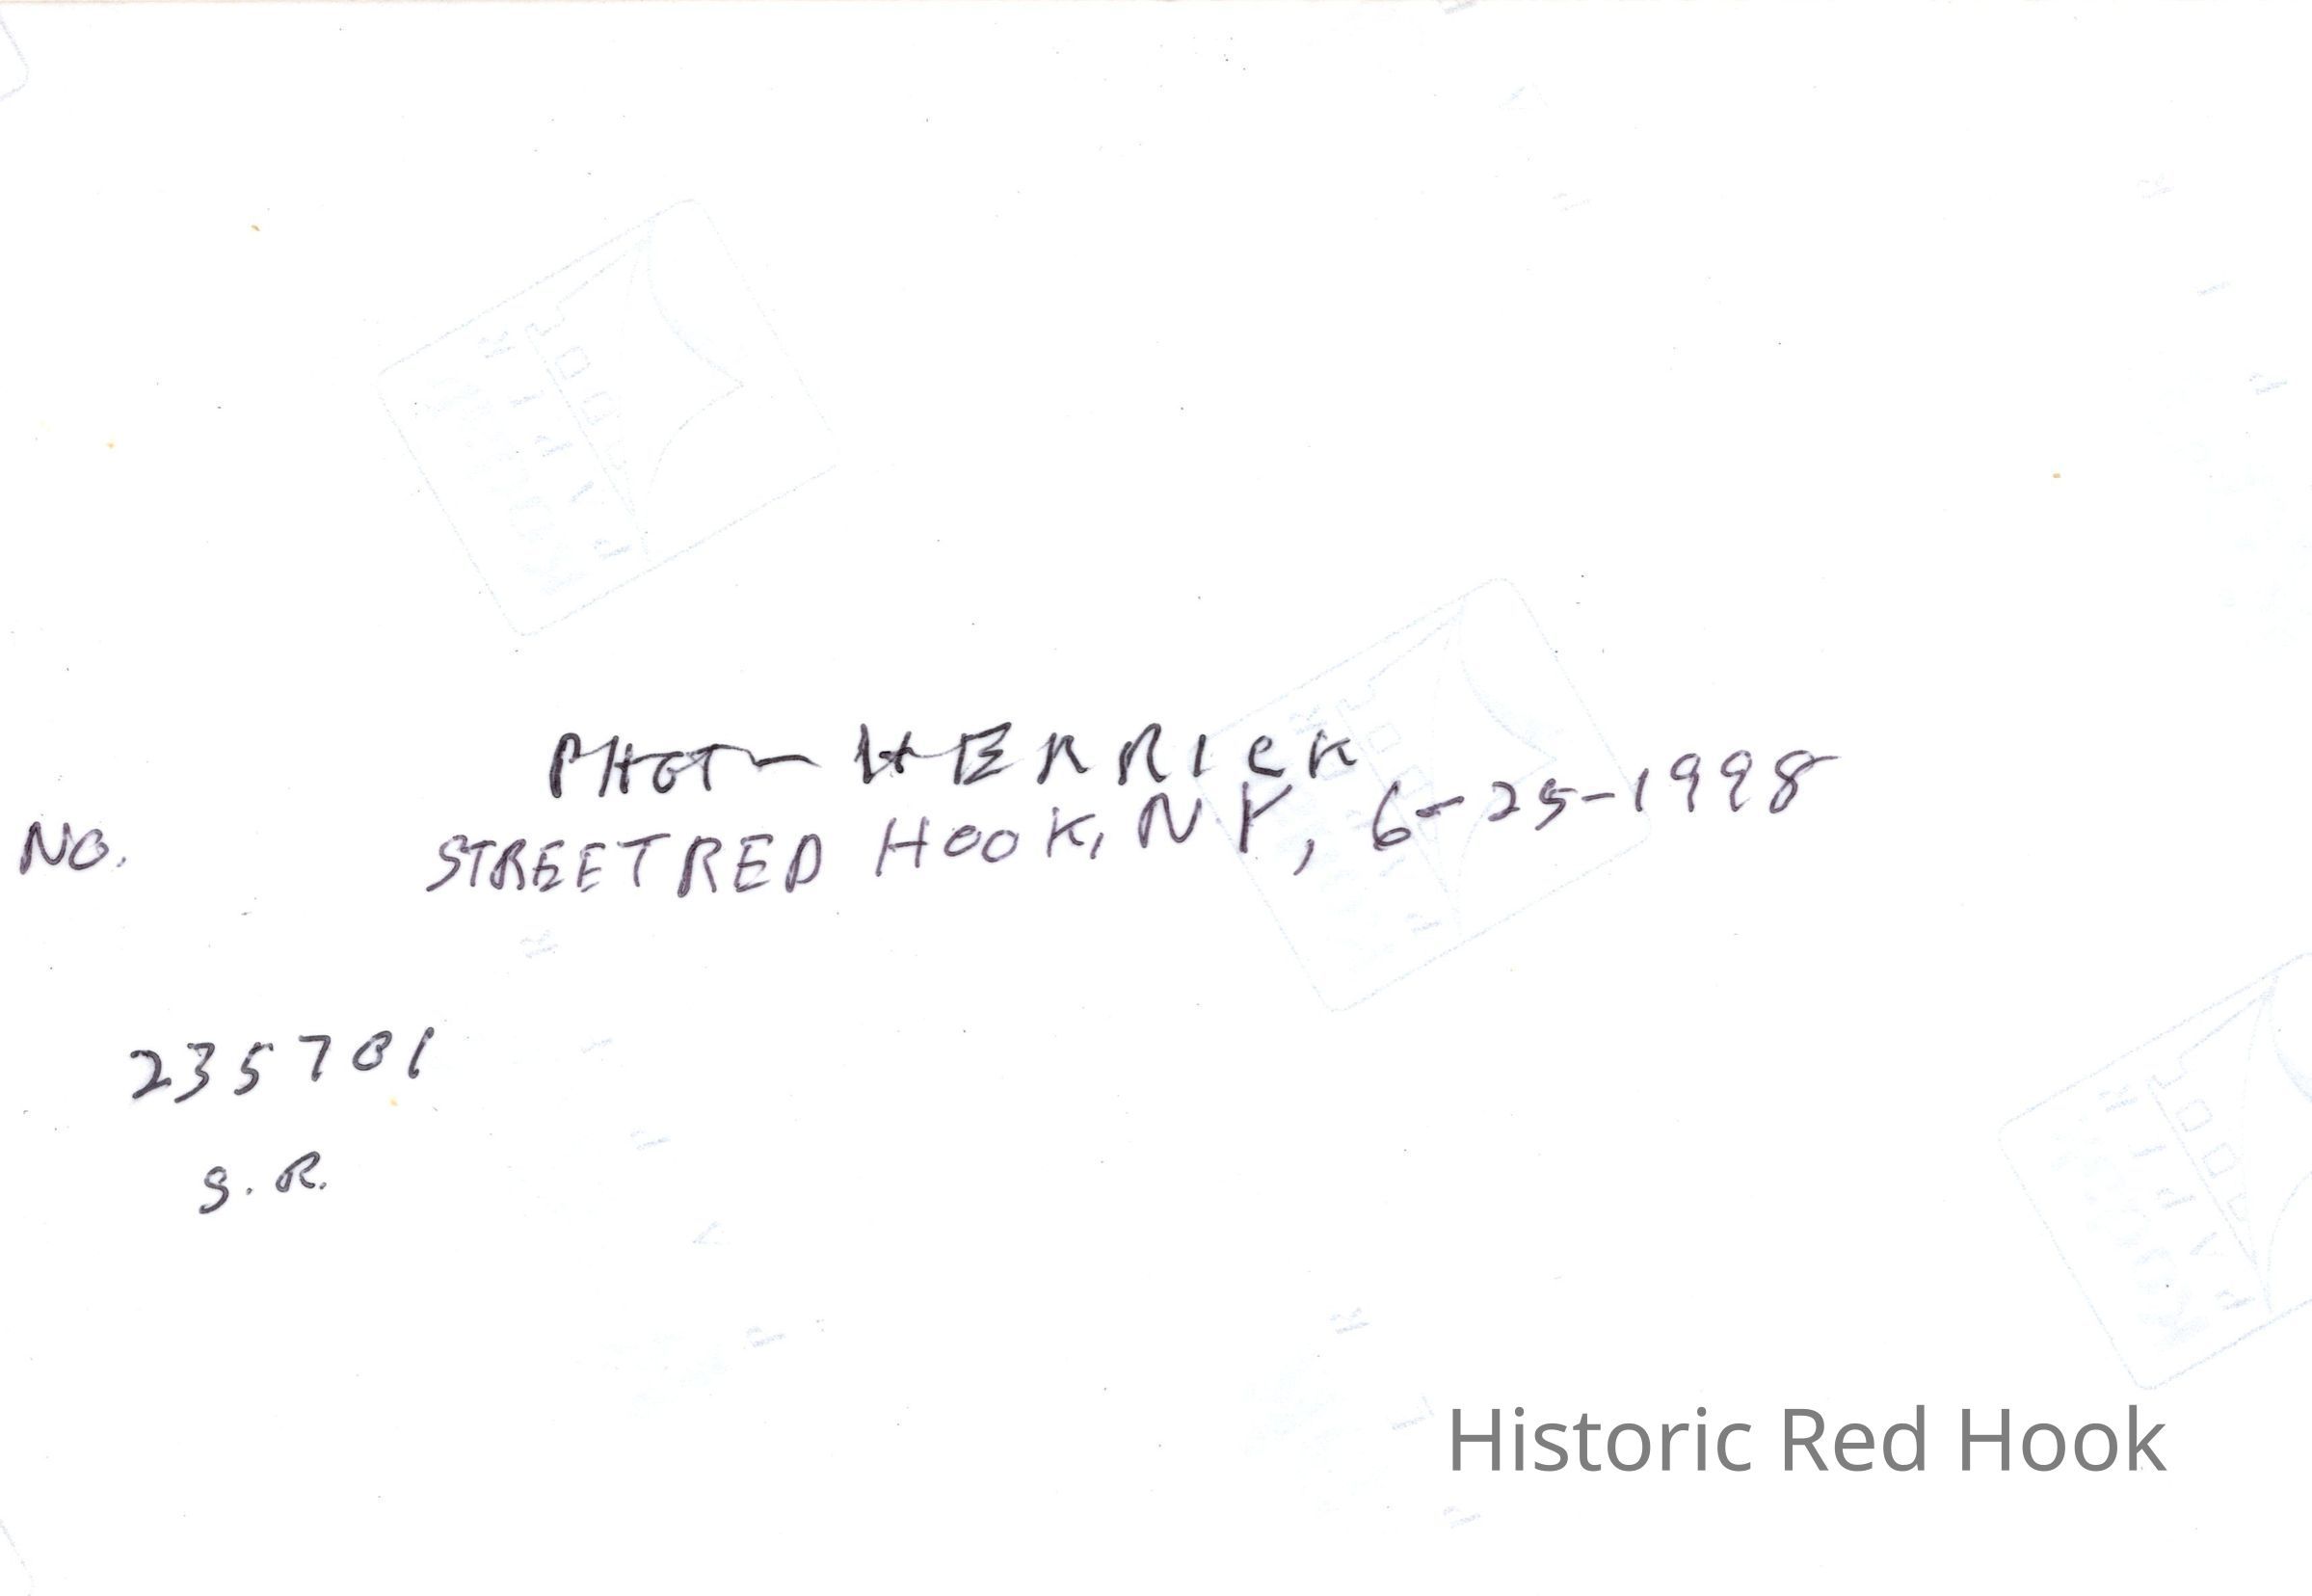 PHOT- HERRICK
NO. STREET RED HOOK, N.Y, 6-25-1998
235701
S. R.
Historic Red Hook